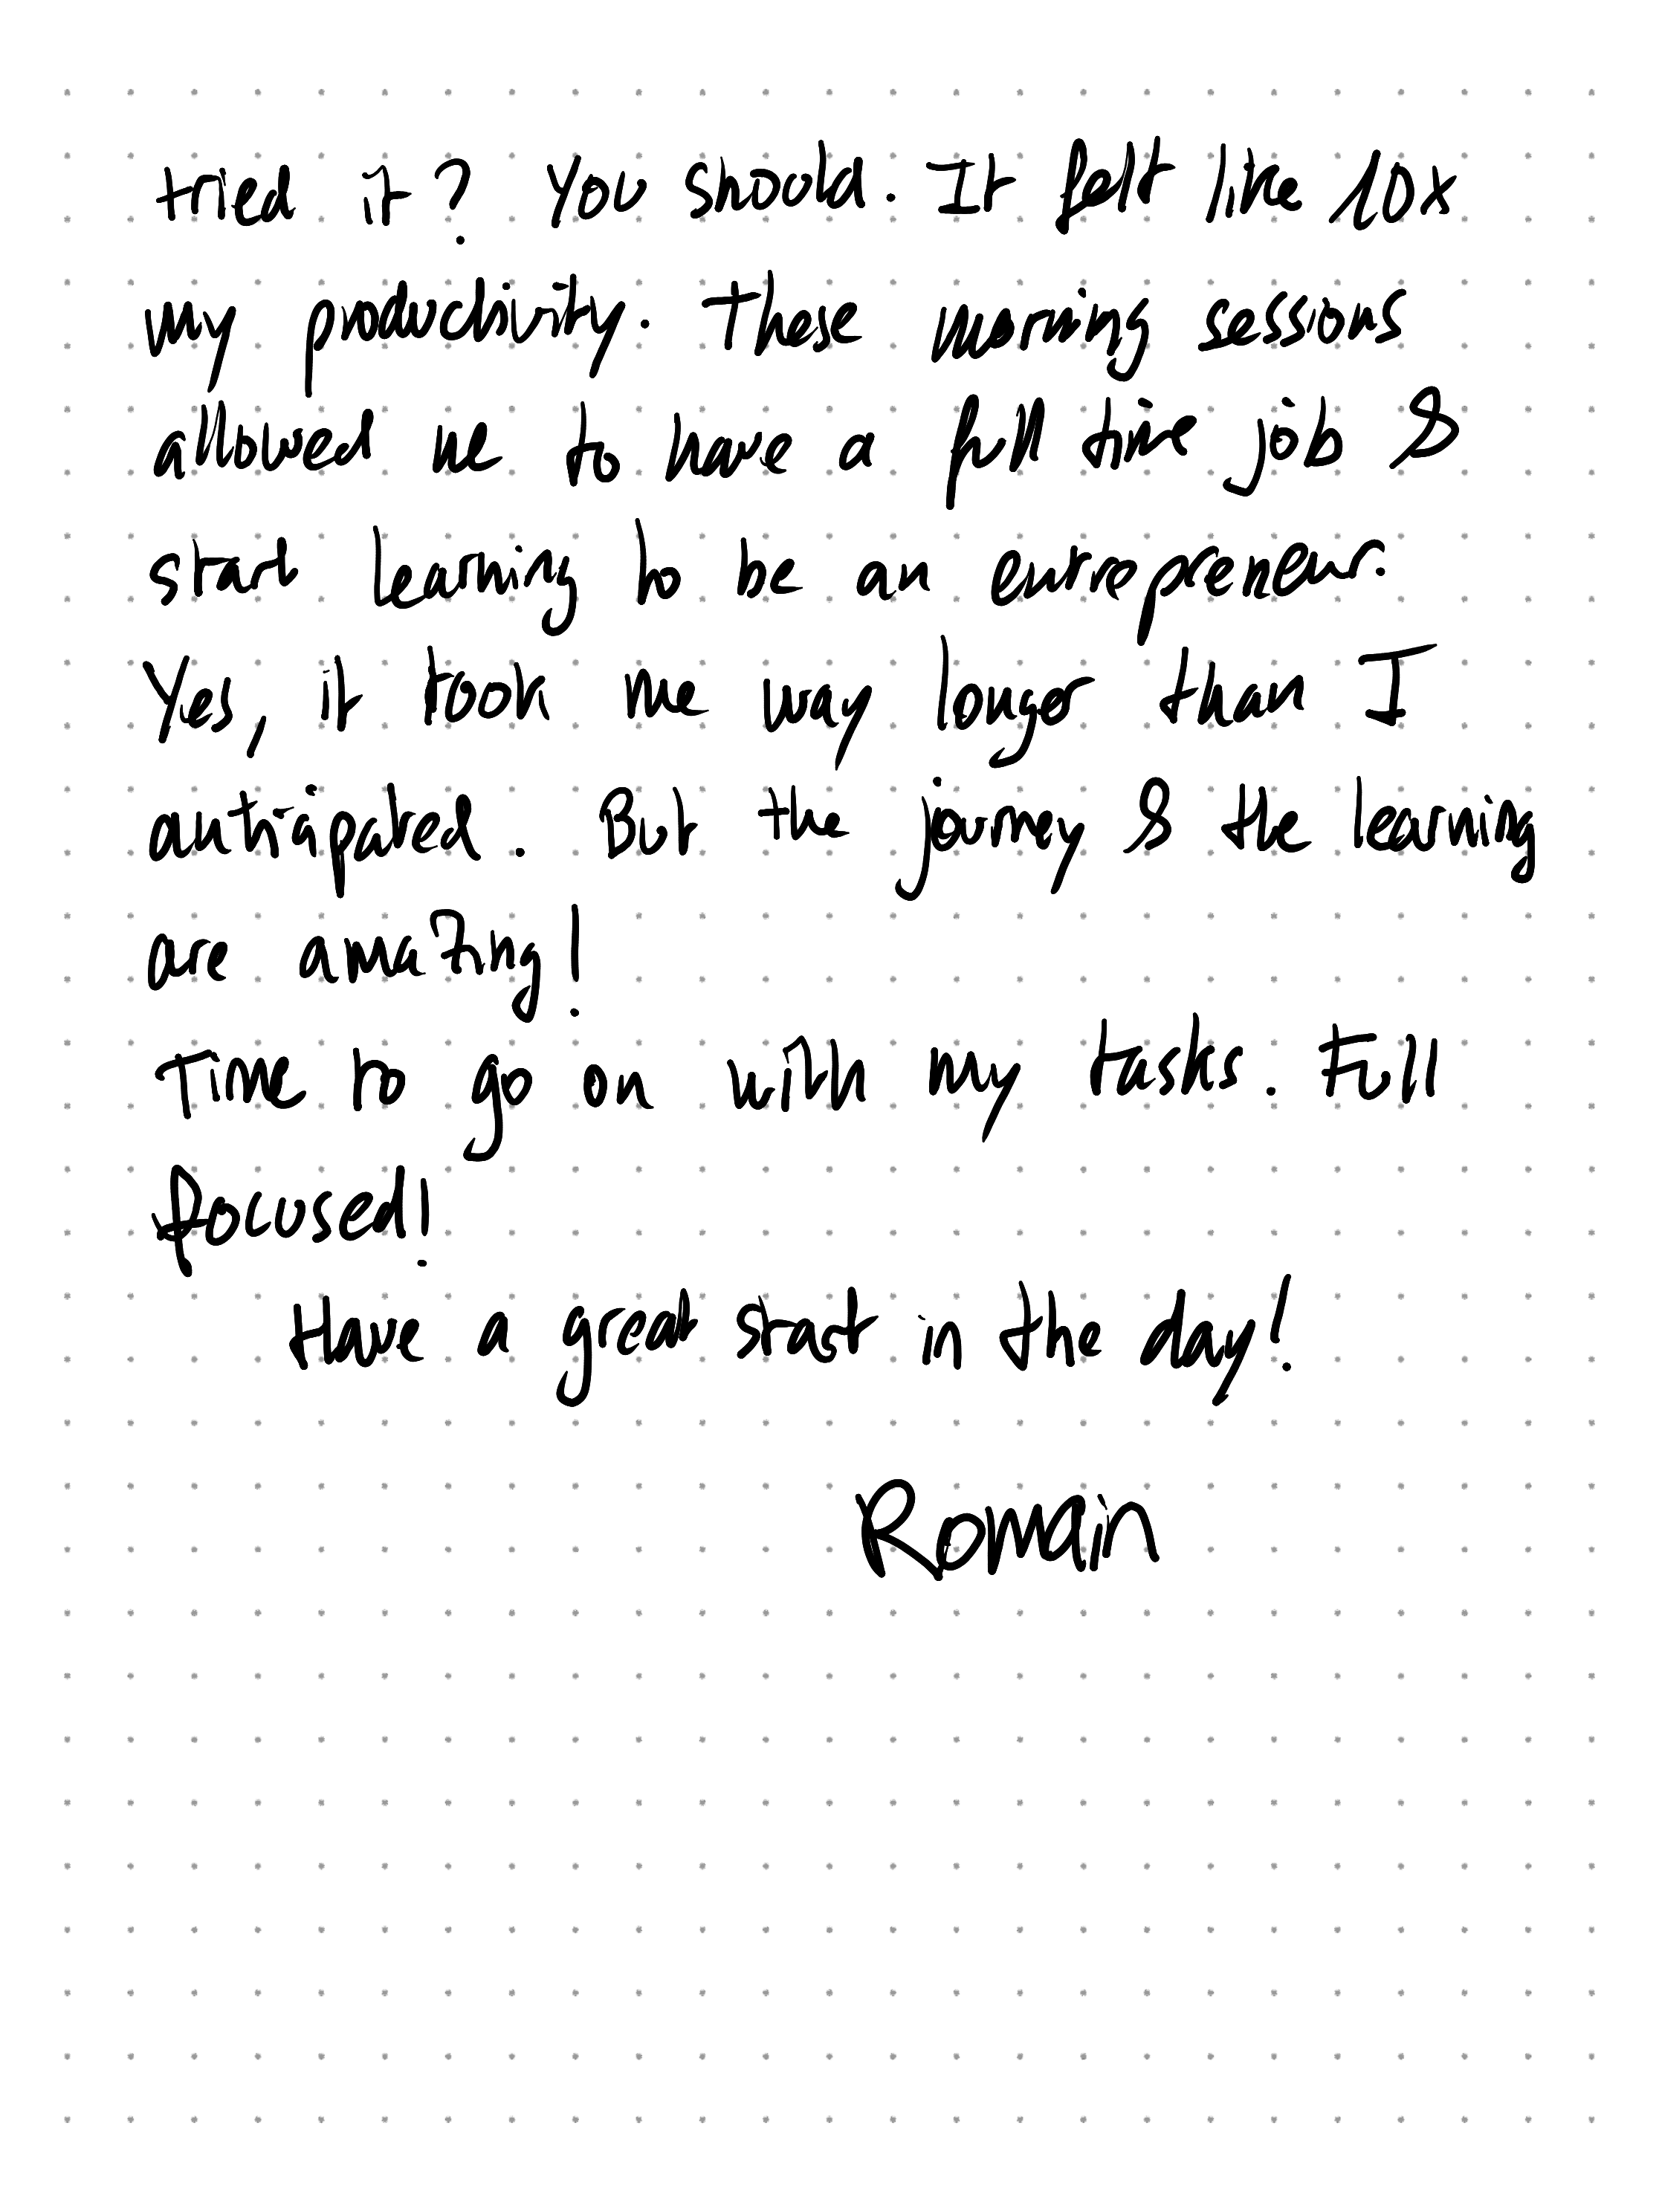 tried it? You should. It felt like 10x
my productivity. These morning sessions
allowed me to have a full time job &
start learning to be an entrepreneur.
Yes, it took me way longer than I
anticipated. But the journey & the learning
are amazing!
Time to go on with my tasks. Full
focused!
Have a great start in the day!
Romain